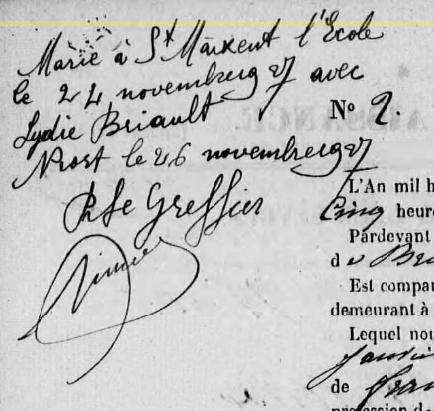 Marié à St Maixent l'Ecole
le 24 novembre 927 avec
Lydie Briault
Niort le 26 novembre 927
P. le Greffier
No 2.
L'An mil h
Cinq heure
Pardevant
d
Est compar
demeurant à
Lequel nou
de
profession de